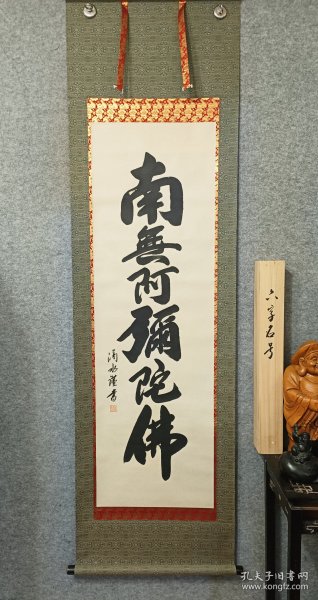 南無阿彌陀佛
六字名号
孔夫子旧书网
www.kongfz.com